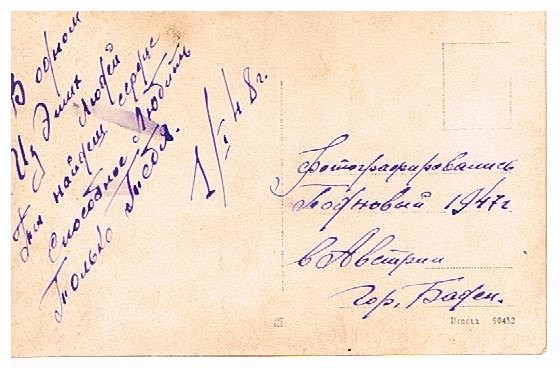 В одном
Из Этих
Людей
Ты найдеш сердце
способное Любить
Только Тебя.
1/I 48г.
Фотографировались
Под новый 1947г
в Австрии
гор. Баден.
59453